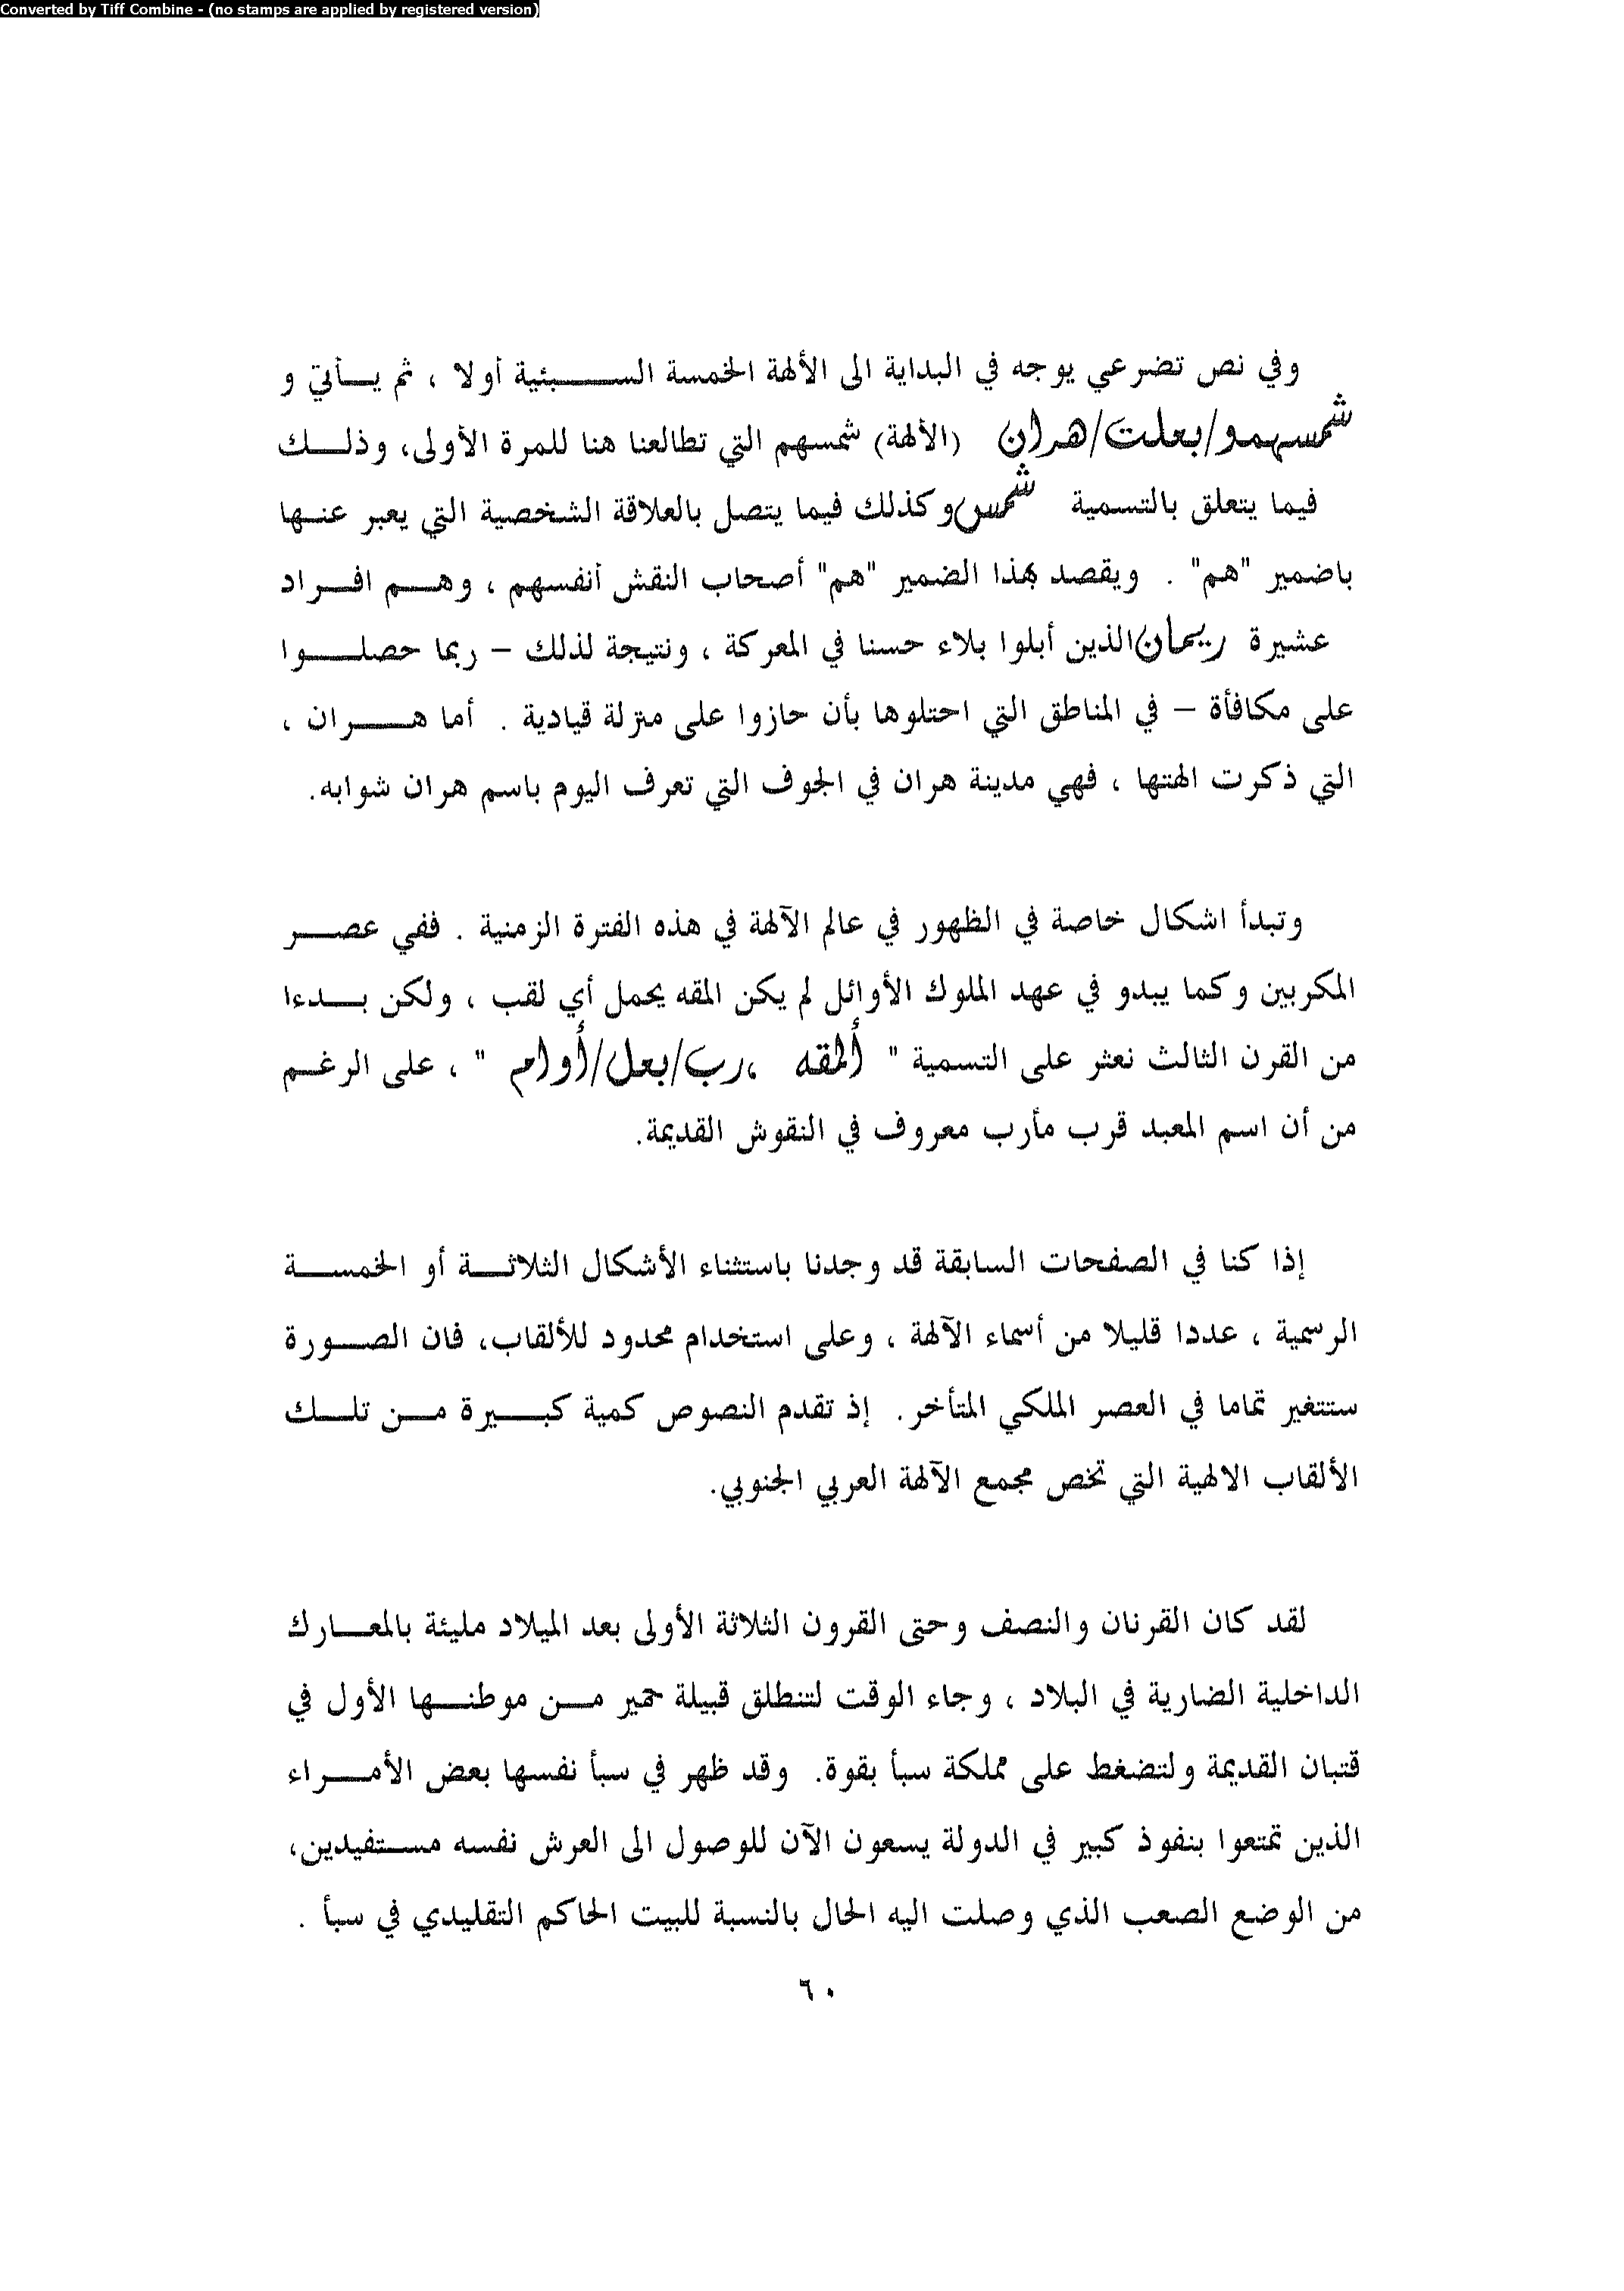 Converted by Tiff Combine - (no stamps are applied by registered version)
وفي نص تضرعي يوجه في البداية الى الألهة الخمسة السبئية أولا ، ثم يأتي و
شمسهمو/بعلت/هران (الألهة) شمسهم التي تطالعنا هنا للمرة الأولى، وذلك
فيما يتعلق بالتسمية شمس وكذلك فيما يتصل بالعلاقة الشخصية التي يعبر عنها
باضمير "هم" . ويقصد بهذا الضمير "هم" أصحاب النقش أنفسهم ، وهم افراد
عشيرة ريمان الذين أبلوا بلاء حسنا في المعركة ، ونتيجة لذلك – ربما حصلوا
على مكافأة – في المناطق التي احتلوها بأن حازوا على منزلة قيادية . أما هران ،
التي ذكرت الهتها ، فهي مدينة هران في الجوف التي تعرف اليوم باسم هران شوابه.
وتبدأ اشكال خاصة في الظهور في عالم الآلهة في هذه الفترة الزمنية . ففي عصر
المكربين وكما يبدو في عهد الملوك الأوائل لم يكن المقه يحمل أي لقب ، ولكن بدءا
من القرن الثالث نعثر على التسمية " ألمقه ،رب/بعل/أوام " ، على الرغم
من أن اسم المعبد قرب مأرب معروف في النقوش القديمة.
إذا كنا في الصفحات السابقة قد وجدنا باستثناء الأشكال الثلاثة أو الخمسة
الرسمية ، عددا قليلا من أسماء الآلهة ، وعلى استخدام محدود للألقاب، فان الصورة
ستتغير تماما في العصر الملكي المتأخر. إذ تقدم النصوص كمية كبيرة من تلك
الألقاب الالهية التي تخص مجمع الآلهة العربي الجنوبي.
لقد كان القرنان والنصف وحتى القرون الثلاثة الأولى بعد الميلاد مليئة بالمعارك
الداخلية الضارية في البلاد ، وجاء الوقت لتنطلق قبيلة حمير من موطنها الأول في
قتبان القديمة ولتضغط على مملكة سبأ بقوة. وقد ظهر في سبأ نفسها بعض الأمراء
الذين تمتعوا بنفوذ كبير في الدولة يسعون الآن للوصول الى العرش نفسه مستفيدين،
من الوضع الصعب الذي وصلت اليه الحال بالنسبة للبيت الحاكم التقليدي في سبأ .
٦٠